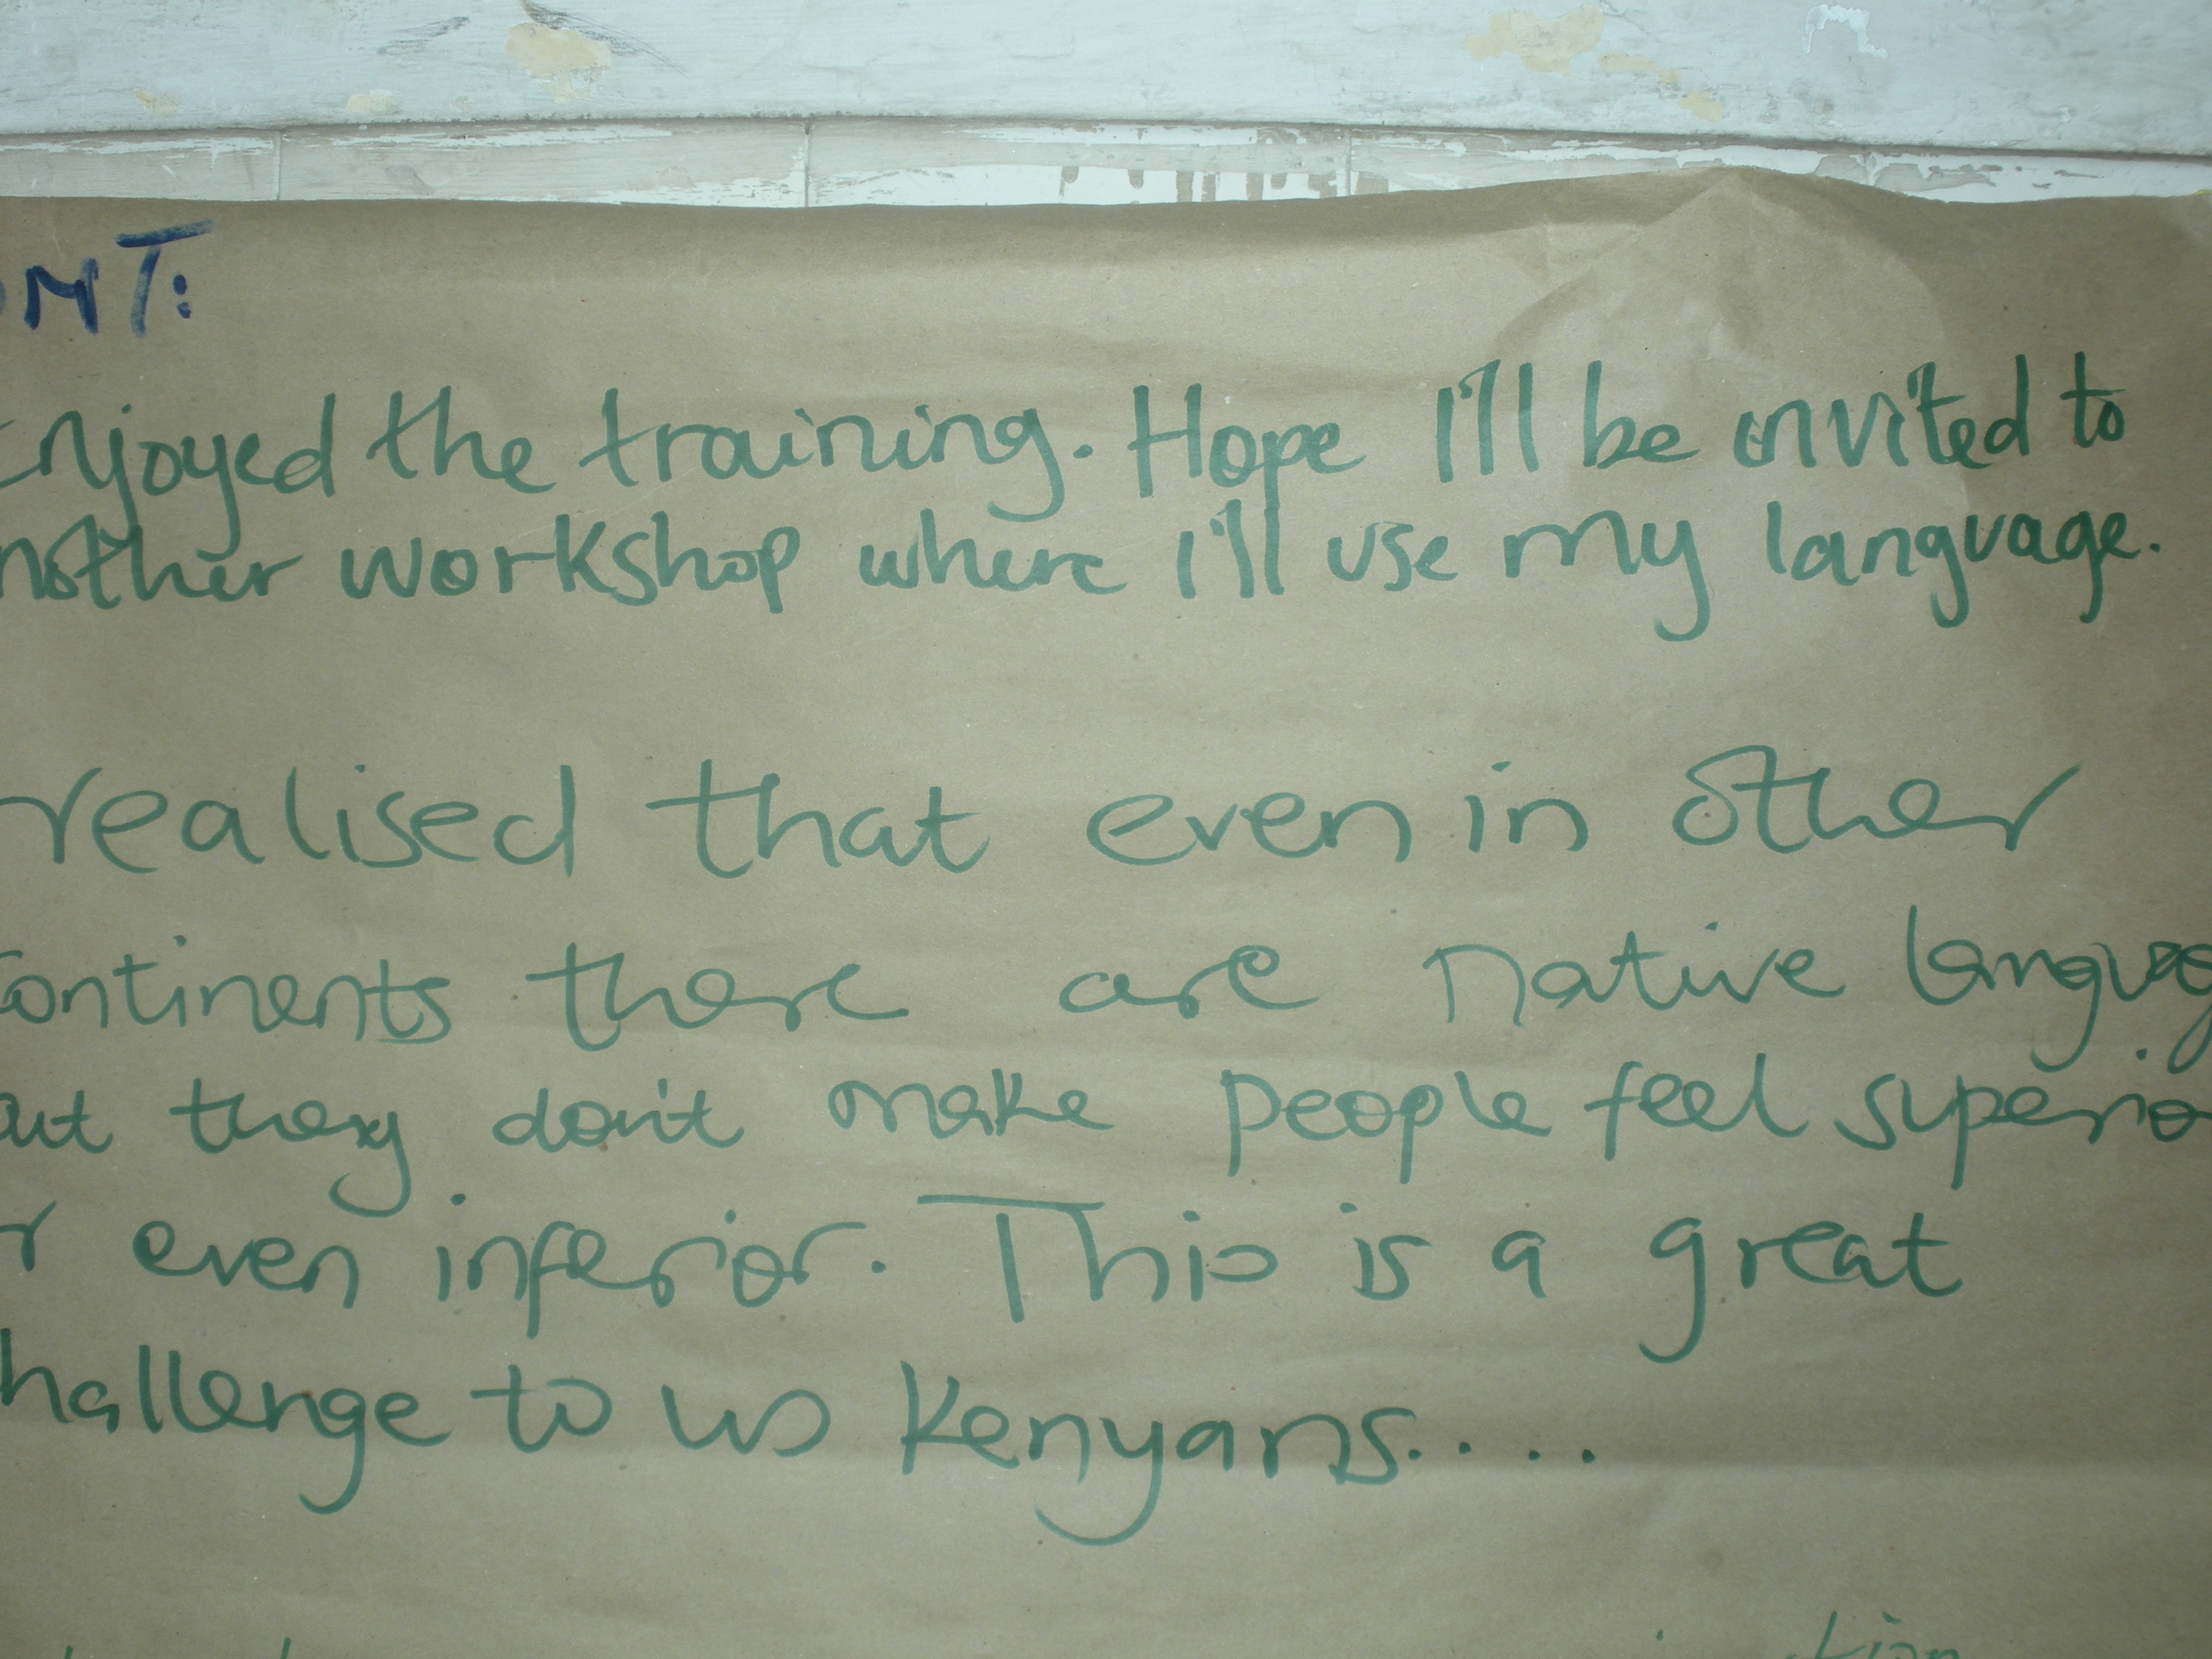 ONT:
Enjoyed the training. Hope I'll be invited to
nother workshop where I'll use my language.
realised that even in other
continents there are native languag
out they don't make people feel superio
r even inferior. This is a great
hallenge to us Kenyans....